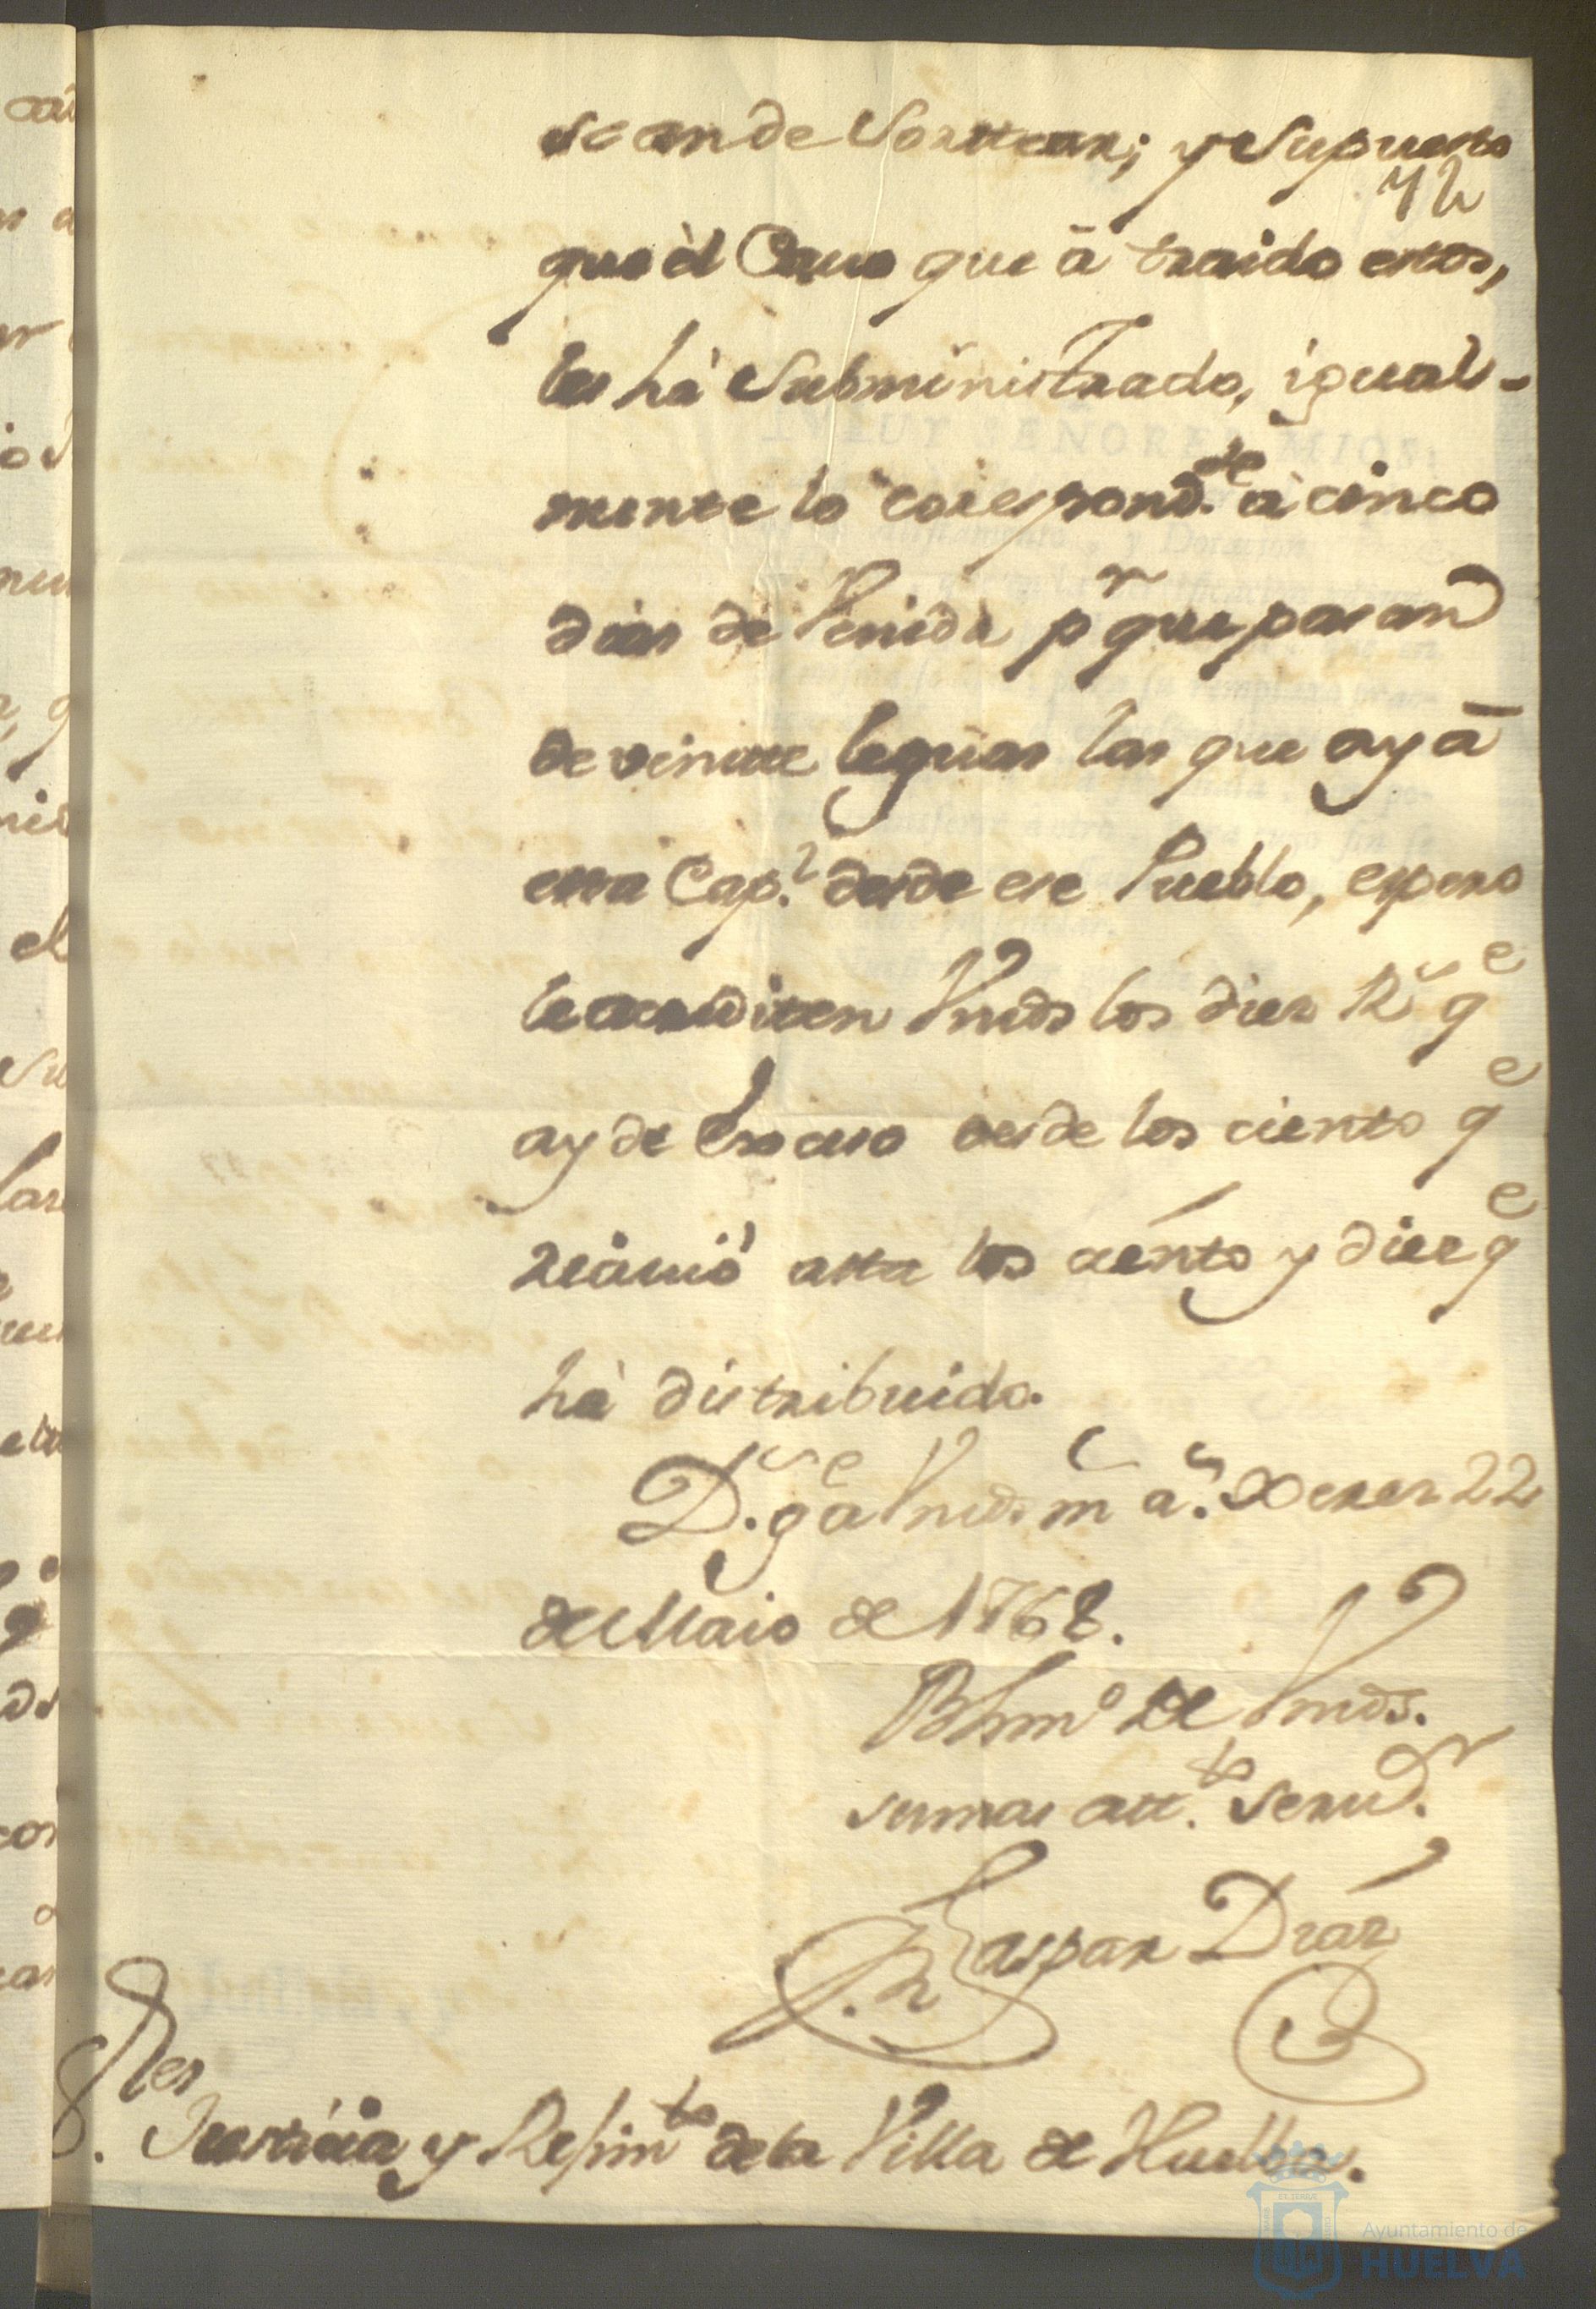 se an de Sorttear; y Supuesto
72
que èl Cavo que â traido estos,
les hà Subministrado, igual-
mente lo correspond.te â cinco
dias de Venida pr que pasan
de veintte leguas las que ay â
esta Cap.l desde ese Pueblo, espero
le acrediten Vmds los diez Rs qe
ay de Exceso desde los ciento qe
reciuiò asta los ciento y diez qe
hà distribuido.
D.s ge a Vmds. m.s a.s Xerez 22
de Maio de 1768.
BLmo de Vmds.
su mas att.to Seruid.r
Gaspar Diaz
S.res Justicia y Reximto de la Villa de Huelba.
Ayuntamiento de
HUELVA